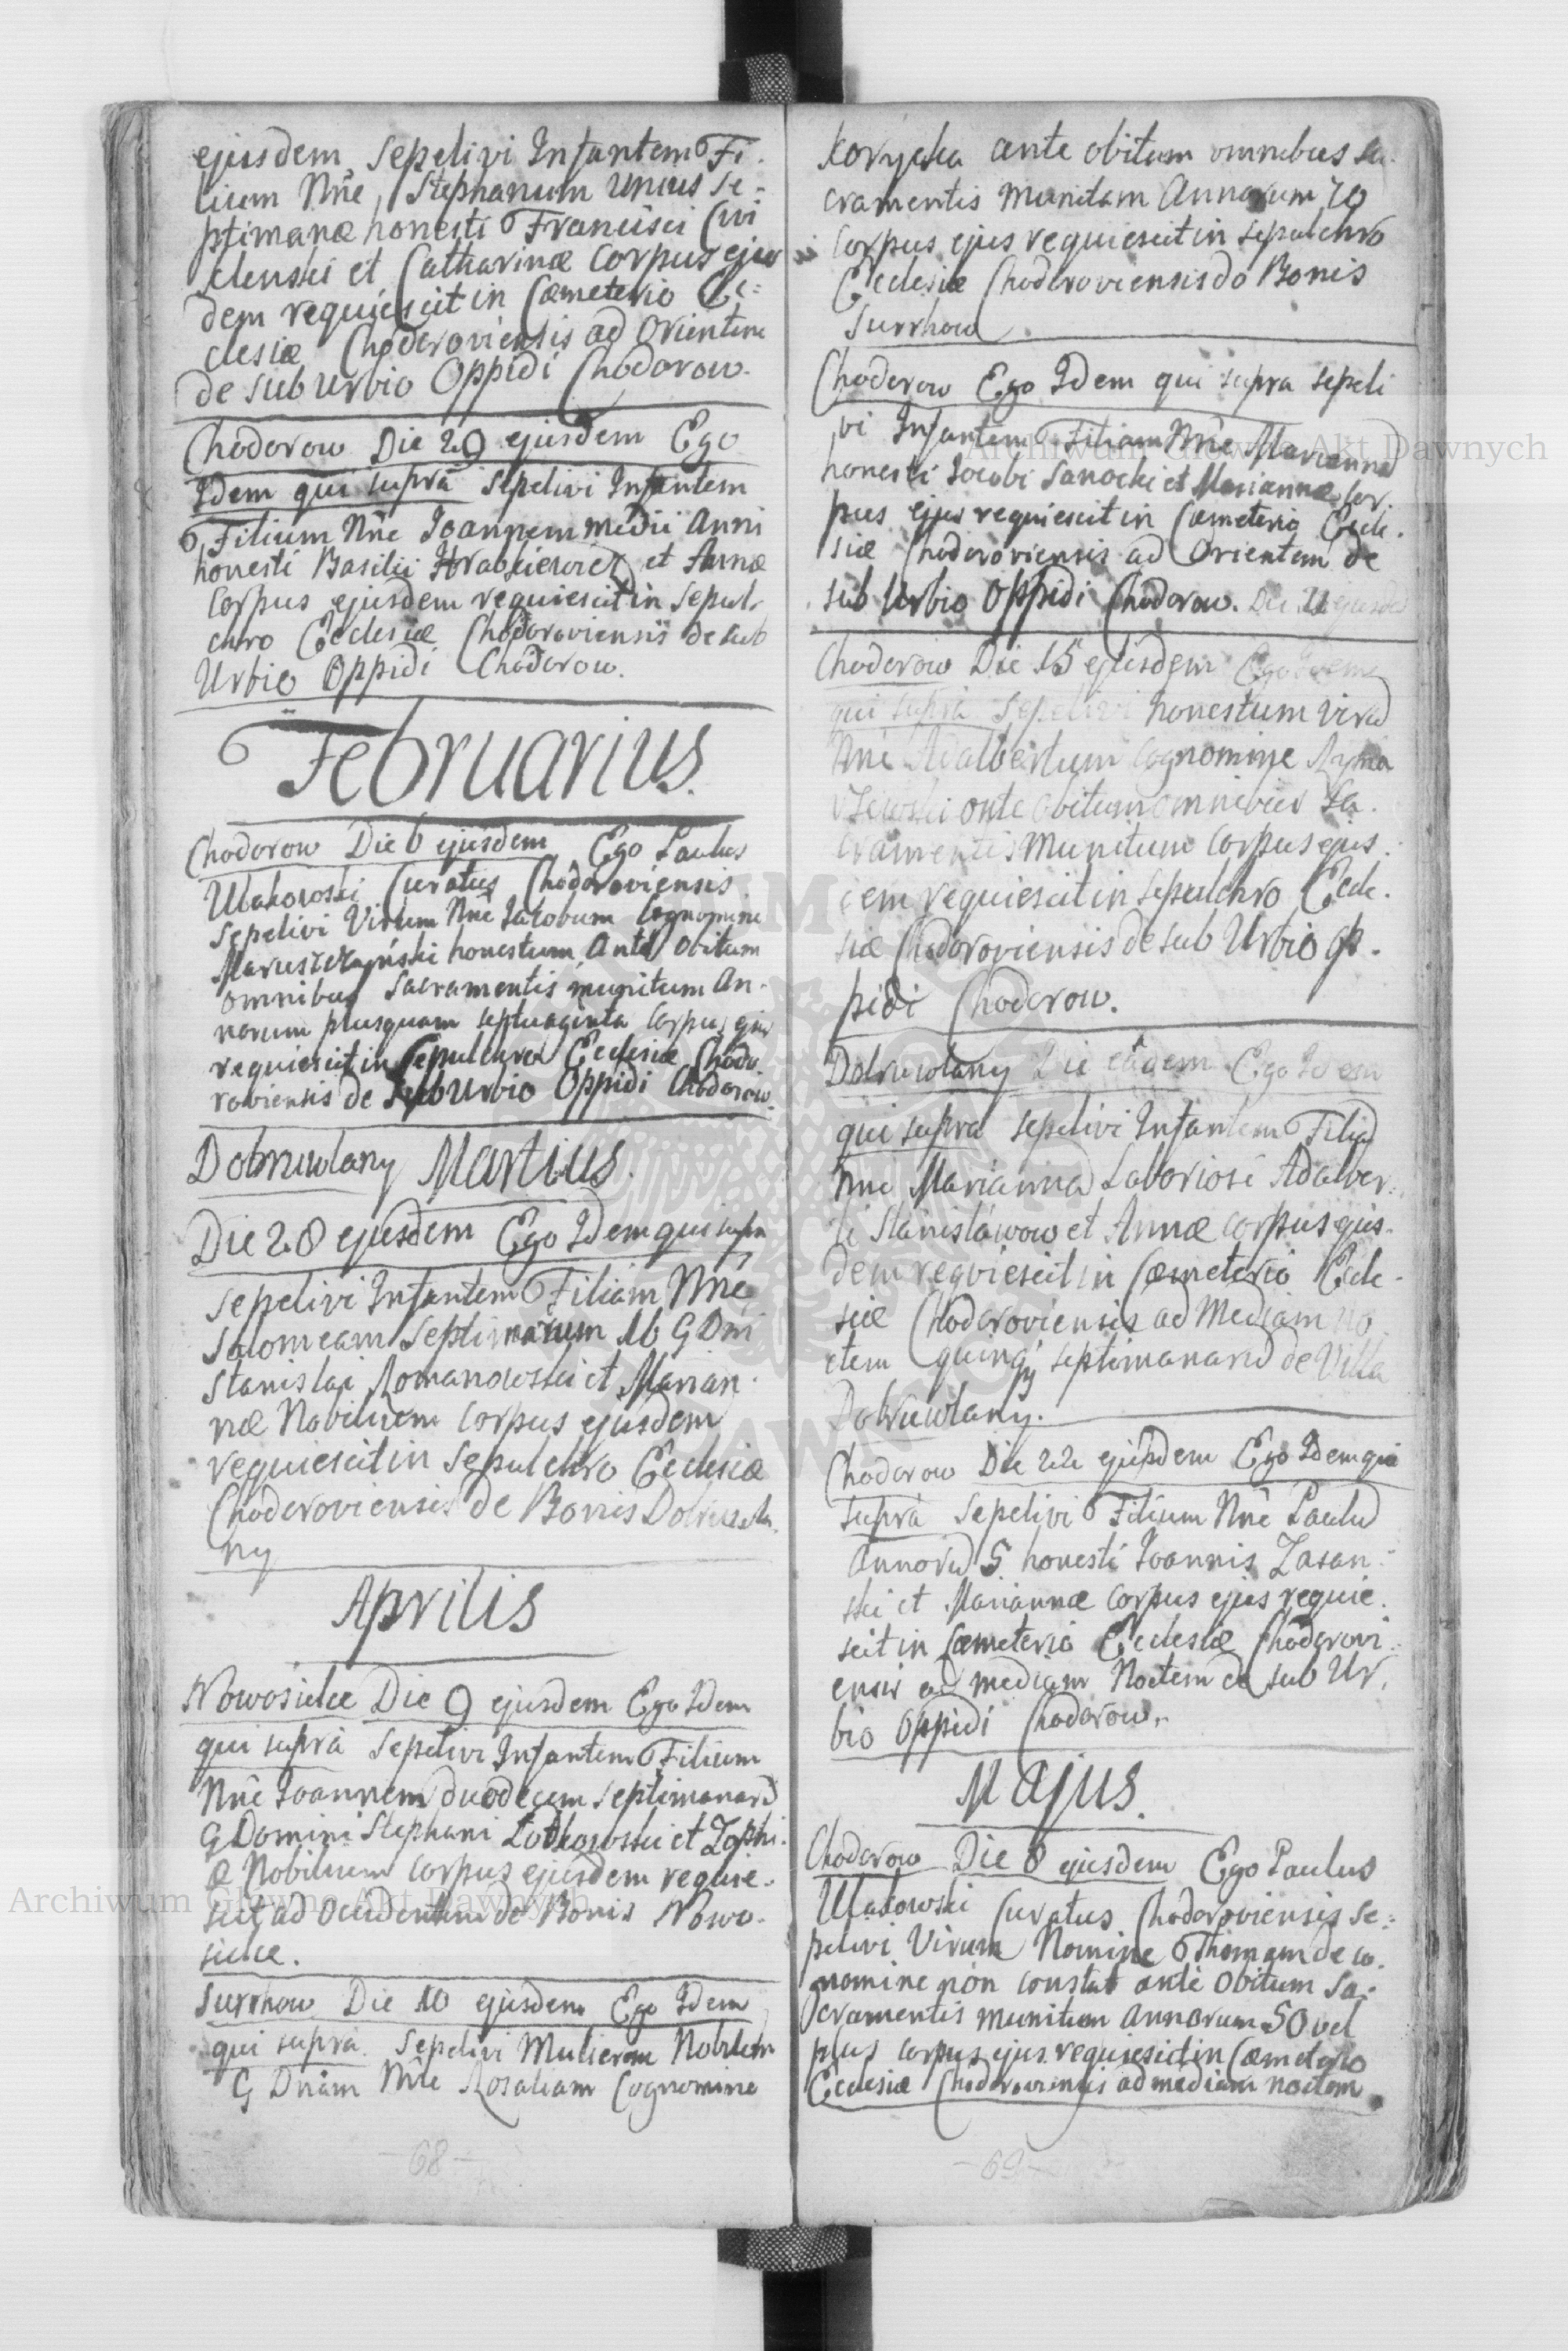 ejusdem Sepelivi Infantem Fi-
lium Nne Stephanum unius se-
ptimanæ honesti Francisci Cwi
et Catharinæ Corpus ejus
dem requiescit in Cæmeterio Ec=
clesiæ Chodoroviensis ad Orientem
de sub urbio Oppidi Chodorow.
Chodorow Die 29 ejusdem Ego
Idem qui supra Sepelivi Infantem
Filium Nne Joannem medii Anni
honesti Basilii et Annæ
Corpus ejusdem requiescit in Sepul-
chro Ecclesiæ Chodoroviensis de sub
Urbio Oppidi Chodorow.
Februarius.
Chodorow Die 6 ejusdem Ego Paulus
Ulakowski Curatus Chodoroviensis
Sepelivi Virum Nne Jacobum Cognomine
honestum Ante Obitum
omnibus Sacramentis munitum An-
norum plusquam septuaginta Corpus ejus
requiescit in Sepulchro Ecclesiæ Chodo
roviensis de Sub Urbio Oppidi Chodorow.
Dobrowlany Martius.
Die 28 ejusdem Ego Idem qui supra
Sepelivi Infantem Filiam Nne
Salomeam Septimanarum 16 G Dni
Stanislai Romanowski et Marian-
næ Nobilium Corpus ejusdem
requiescit in Sepulchro Ecclesiæ
Chodoroviensis de Bonis Dobrowla-
ny
Aprilis
Nowosielce Die 9 ejusdem Ego Idem
qui supra Sepelivi Infantem Filium
Nne Joannem duodecem septimanarū
G Domini Stephani et Zophi-
æ Nobilium Corpus ejusdem requie-
scit ad Occidentem de Bonis Nowo-
sielce.
Surrhow Die 10 ejusdem Ego Idem
qui supra Sepelivi Mulierem Nobilem
G Dnam Nne Rosaliam Cognomine
-68-
Korycka ante obitum omnibus sa-
cramentis munitam Annorum 70
Corpus ejus requiescit in sepulchro
Ecclesiæ Chodoroviensis do Bonis
Surrhow.
Chodorow Ego Idem qui supra sepeli
vi Infantem Filiam Nne Mariannā
honesti Jacobi Sanocki et Mariannæ Cor-
pus ejus requiescit in Cæmeterio Eccle-
siæ Chodoroviensis ad Orientem de
sub Urbio Oppidi Chodorow. Die
Chodorow Die 15 ejusdem Ego Idem
qui supra Sepelivi honestum virū
Nne Adalbertum Cognomine
ante obitum omnibus Sa-
cramentis Munitum Corpus ejus-
dem requiescit in Sepulchro Eccle-
siæ Chodoroviensis de sub Urbio Op-
pidi Chodorow.
Dobrowlany Die eadem Ego Idem
qui supra sepelivi Infantem Filiā
Nne Mariannā Laboriosi Adalber-
ti Stanislawow et Annæ Corpus ejus-
dem requiescit in Cæmeterio Eccle-
siæ Chodoroviensis ad Mediam no
ctem quinqȝ septimanarū de Villa
Dobrowlany.
Chodorow Die 22 ejusdem Ego Idem qui
supra Sepelivi Filium Nne Paulū
Annorū 5 honesti Joannis Zasan-
ski et Mariannæ Corpus ejus requie-
scit in Cæmeterio Ecclesiæ Chodorovi-
ensis ad mediam Noctem de sub Ur-
bio Oppidi Chodorow.
Majus.
Chodorow Die 8 ejusdem Ego Paulus
Ulakowski Curatus Chodoroviensis Se=
pelivi Virum Nomine Thomam de co-
nomine non constat ante Obitum Sa-
cramentis munitum Annorum 50 vel
plus Corpus ejus requiescit in Cæmeterio
Ecclesiæ Chodoroviensis ad mediam noctem
-69-
Archiwum Główne Akt Dawnych
Archiwum Główne Akt Dawnych